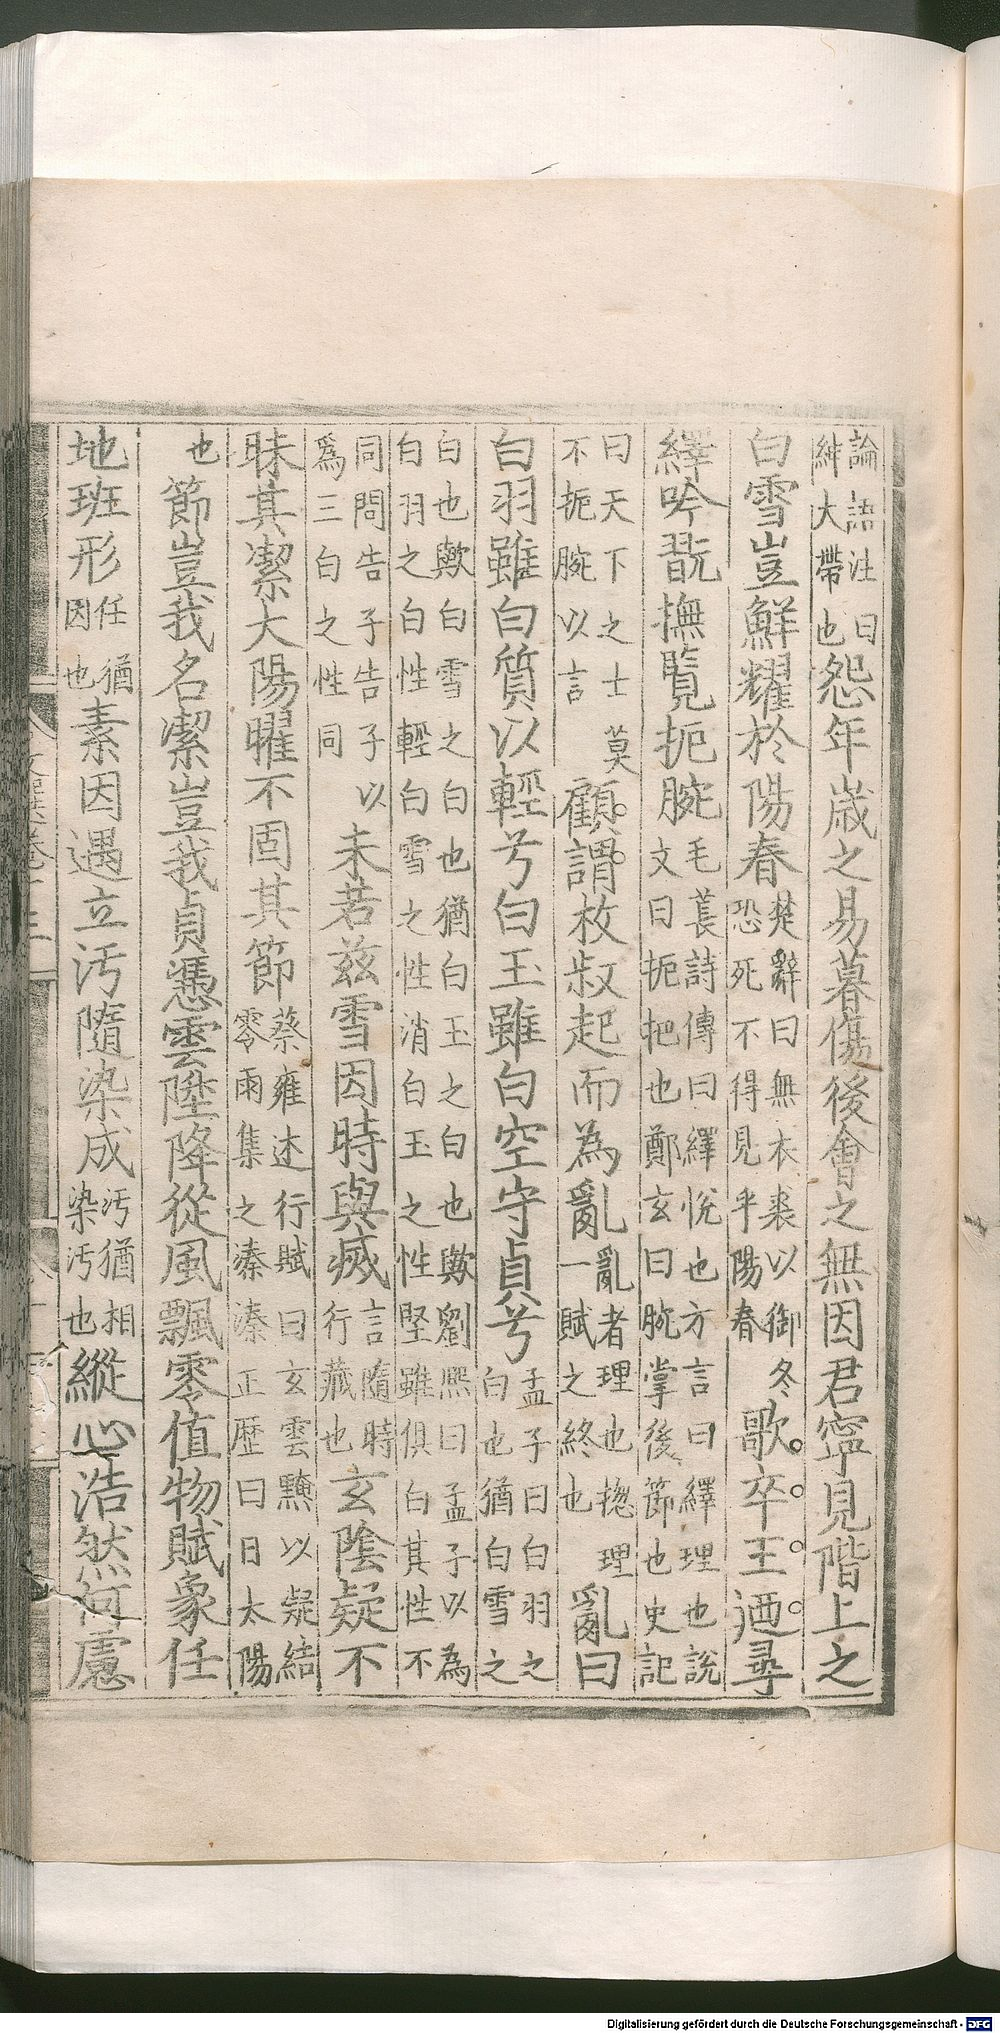 論語注曰紳大帶也怨年歲之易暮傷後會之無因君寧見階上之
白雪豈鮮耀於陽春楚辭曰無衣裘以御冬恐死不得見乎陽春歌卒王迺尋
繹吟翫撫覽扼腕毛萇詩傳曰繹悅也方言曰繹理也說文曰扼把也鄭玄曰腕掌後節也史記
曰天下之士莫不扼腕以言顧謂枚叔起而為亂亂者理也揔理一賦之終也亂曰
白羽雖白質以輕兮白玉雖白空守貞兮孟子曰白羽之白也猶白雪之
白也歟白雪之白也猶白玉之白也歟劉熙曰孟子以為白羽之白性輕白雪之性消白玉之性堅雖俱白其性不
同問告子告子以為三白之性同未若茲雪因時興滅言隨時行藏也玄陰凝不
昧其潔太陽曜不固其節蔡雍述行賦曰玄雲黮以凝結零雨集之溱溱正歷曰日太陽
也節豈我名潔豈我貞憑雲陞降從風飄零值物賦象任
地班形任猶因也素因遇立汚隨染成汚猶相染汚也縱心浩然何慮
Digitalisierung gefördert durch die Deutsche Forschungsgemeinschaft - DFG